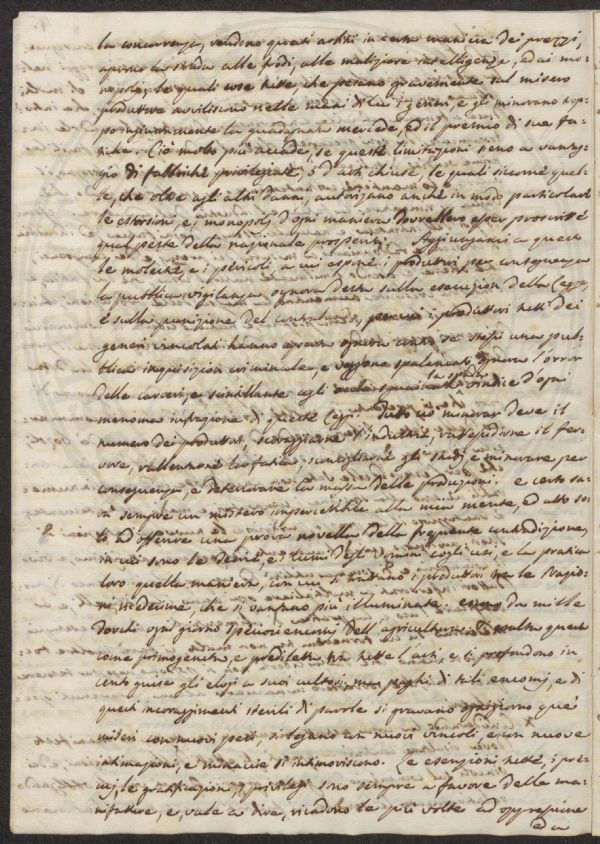 la concorrenza, rendono questi arbitri in certa maniera dei prezzi,
aprono la strada alle frodi, alle maliziose intelligenze, ed ai mo-
nopolj; le quali cose tutte, che pesano gravemente sul misero
produttore avviliscono nelle mani di lui i generi, e gli minorano
la guadagnata mercede, ed il premio di sue fa-
tiche. Ciò molto più accade, se queste limitazioni sieno a vantag-
gio di fabbriche privilegiate, o d'arti chiuse, le quali siccome quel-
le, che oltre agli altri danni, autorizzano anche in modo particolare
le estorsioni, e i monopolj d'ogni maniera dovrebbero esser proscritte
qual peste della nazionale prosperità. Aggiungansi a queste
le molestie, e i pericoli, a cui espone i produttori per conseguenza
la pubblica vigilanza ognora desta sulla esecuzion della Legge,
e sulla punizione del contrabando, perciò i produttori tutti dei
generi vincolati hanno ognora contro se stessi una pub-
blica inquisizion criminale, e veggono spalancati ognora l'orror
delle carceri, e scintillante agli occhi la spada vindice d'ogni
menoma infrazione di queste Leggi. Tutto ciò minorar deve il
numero dei produttori, scoraggiare l'industria, rattepidirne il fer-
vore, rallentarne le fatiche, sconsigliarne gli studj, e minorare per
conseguenza, e deteriorare la massa delle produzioni. e certo sa-
rà sempre un mistero impercettibile alla mia mente, ed atto so-
lo ad offerire una prova novella della frequente contradizione,
in cui sono le teorie, e i lumi degli uomini cogli usi, e la pratica
loro quella maniera, con cui si trattano i produttori tra le Nazio-
ni medesime, che si vantano più illuminate. da mille
dotti ogni giorno encomj dell'agricoltura. Si esalta questa
come primogenita, e prediletta tra tutte l'arti, e si profondono in
cento guise gli elogj a suoi cultori; ma paghi di tali encomj, e di
questi incoraggimenti sterili di parole si gravano ognigiorno que'
miseri con nuovi pesi, si legano con nuovi vincoli, e con nuove
intimazioni, e minaccie si intimoriscono. Le esenzioni tutte, i pre-
mj, le gratificazioni, i privilegj sono sempre a favore delle ma-
nifatture, e, vale a dire, ricadono le più volte ad oppressione
ed a